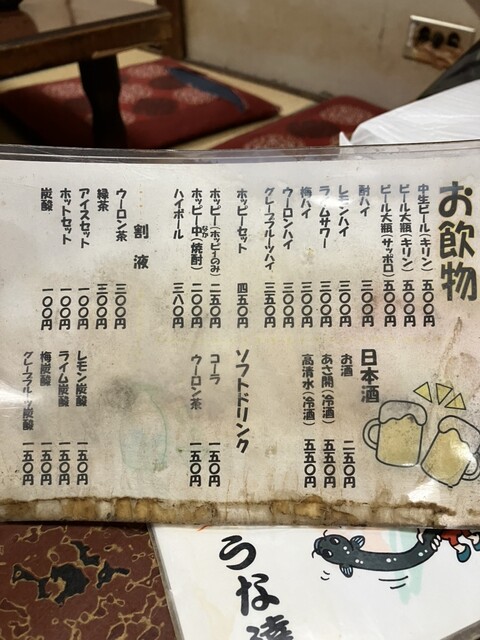 お飲物
中生ビール(キリン) 五〇〇円
ビール大瓶(キリン) 五〇〇円
ビール大瓶(サッポロ) 五〇〇円
酎ハイ 三〇〇円
レモンハイ 三〇〇円
ラムサワー 三〇〇円
梅ハイ 三〇〇円
ウーロンハイ 三〇〇円
グレープフルーツハイ 三五〇円
ホッピーセット 四五〇円
ホッピー(ホッピィのみ) 二五〇円
ホッピー中(焼酎) 二〇〇円
なか
ハイボール 三八〇円
割液
ウーロン茶 三〇〇円
緑茶 三〇〇円
アイスセット 一〇〇円
ホットセット 一〇〇円
炭酸 一〇〇円
日本酒
お酒 二五〇円
あさ開(冷酒) 五五〇円
高清水(冷酒) 五五〇円
ソフトドリンク
コーラ 一五〇円
ウーロン茶 一五〇円
レモン炭酸 一五〇円
ライム炭酸 一五〇円
梅炭酸 一五〇円
グレープフルーツ炭酸 一五〇円
うな達